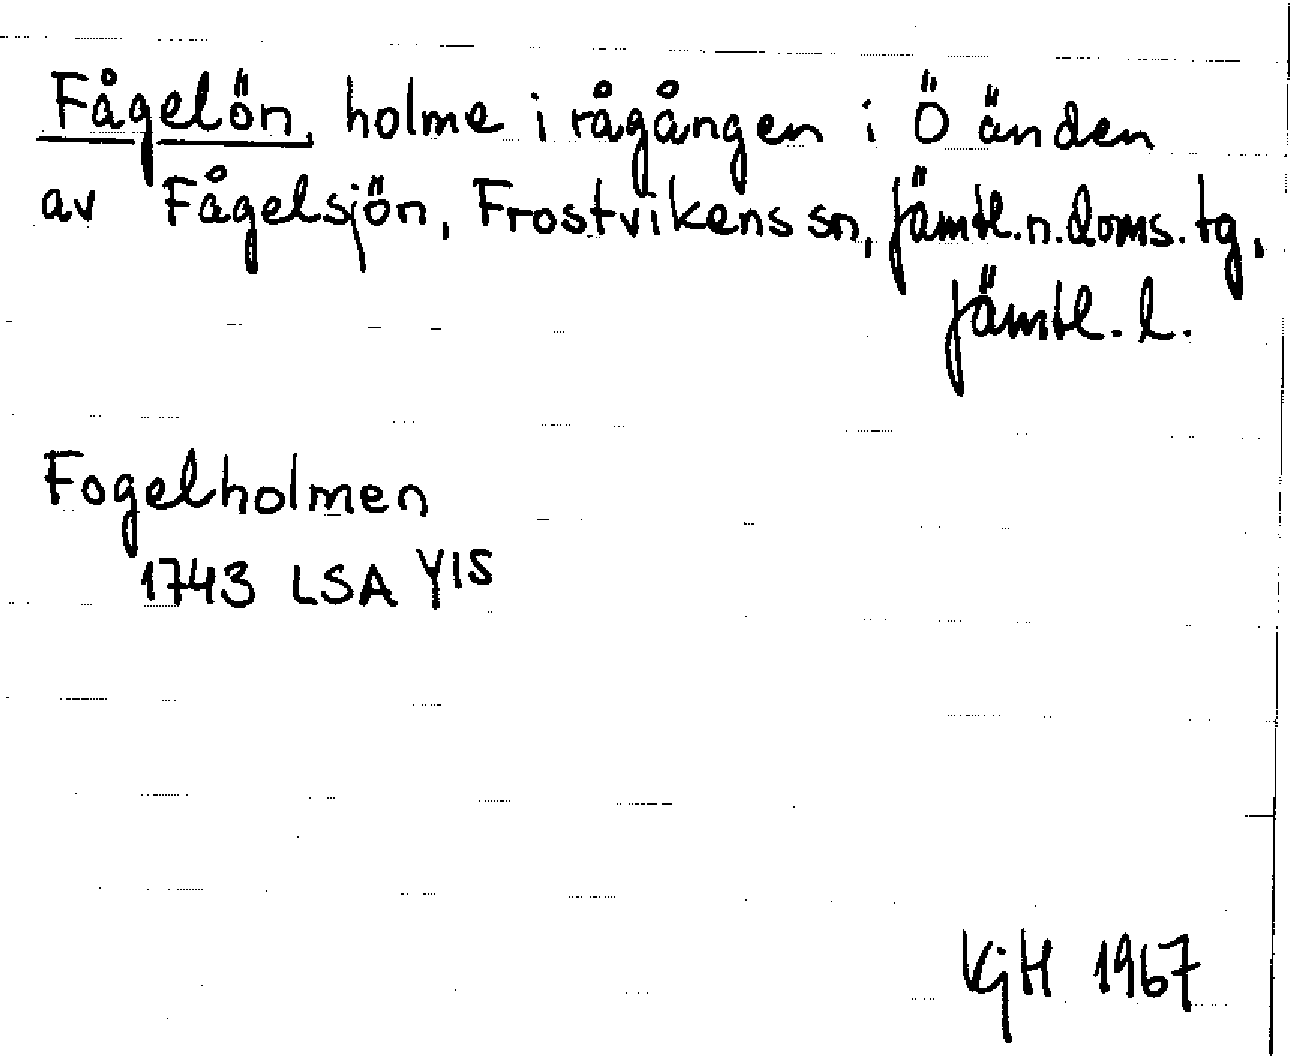 Fågelön, holme i rågången i Ö änden
av Fågelsjön, Frostvikens sn, Jämtl.n.doms.tg,
Jämtl. l.
Fogelholmen
1743 LSA Y15
KjH 1967